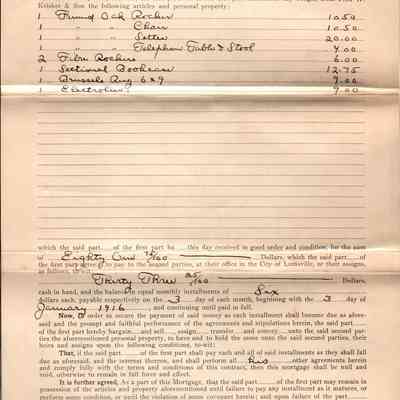 Kriskee & Son the following articles and personal property:
1 Fumed Oak Rocker 10 50
1 " " Chair 10 50
1 " " Settee 20.00
1 " " Telephone Table & Stool 4.00
2 Fibre Rockers 6.00
1 Sectional Bookcase 12.75
1 Brussels Rug 6x9 9.00
1 9.00
which the said part of the first part ha this day received in good order and condition, for the sum
of Eighty One 75/100 Dollars, which the said part of
the first part agree to pay to the second parties, at their office in the City of Louisville, or their assigns,
as follows, to-wit:
Thirty Three 25/100 Dollars,
cash in hand, and the balance in equal monthly installments of Six
dollars each, payable respectively on the 3 day of each month, beginning with the 3 day of
January 1916, and continuing until paid in full.
Now, in order to secure the payment of said money as each installment shall become due as afore-
said and the prompt and faithful performance of the agreements and stipulations herein, the said part
of the first part hereby bargain and sell, assign, transfer and convey unto the said second par-
ties the aforementioned personal property, to have and to hold the same unto the said second parties, their
heirs and assigns upon the following conditions, to-wit:
That, if the said part of the first part shall pay each and all of said installments as they shall fall
due as aforesaid, and the interest thereon, and shall perform all other agreements herein
and comply fully with the terms and conditions of this contract, then this mortgage shall be null and
void, otherwise to remain in full force and effect.
It is further agreed, As a part of this Mortgage, that the said part of the first part may remain in
possession of the articles and property aforementioned until failure to pay any installment as it matures, or
perform some condition, or until the violation of some covenant herein; and upon failure of the part